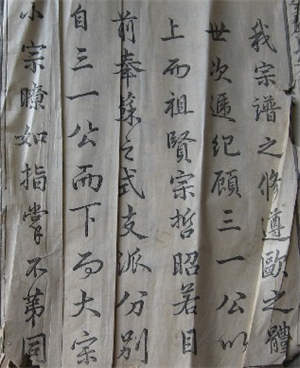 我宗谱之修遵歐之體
世次遞紀顧三一公以
上而祖賢宗哲昭若目
前奉蘇之式支派分别
自三一公而下而大宗
小宗瞭如指掌不第同